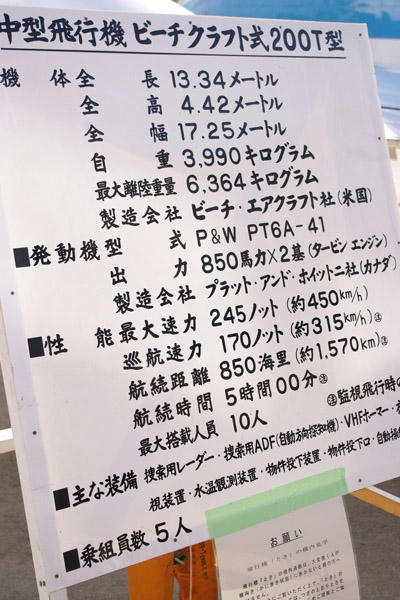 中型飛行機 ビーチクラフト式200T型
機体全長 13.34メートル
全高 4.42メートル
全幅 17.25メートル
自重 3,990キログラム
最大離陸重量 6,364キログラム
製造会社 ビーチ・エアクラフト社(米国)
■発動機型式 P&W PT6A-41
出力 850馬力×2基(タービンエンジン)
製造会社 プラット・アンド・ホイットニ社(カナダ)
■性能最大速力 245ノット(約450km/h)
巡航速力 170ノット(約315km/h)㊟
航続距離 850海里(約1,570km)㊟
航続時間 5時間00分㊟
㊟監視飛行時の
最大搭載人員 10人
■主な装備 捜索用レーダー・捜索用ADF(自動方向探知機)・VHFホーマー・
視装置・水温観測装置・物件投下装置・物件投下口・自動操
■乗組員数 5人
お願い
飛行機「とき」の機内見学